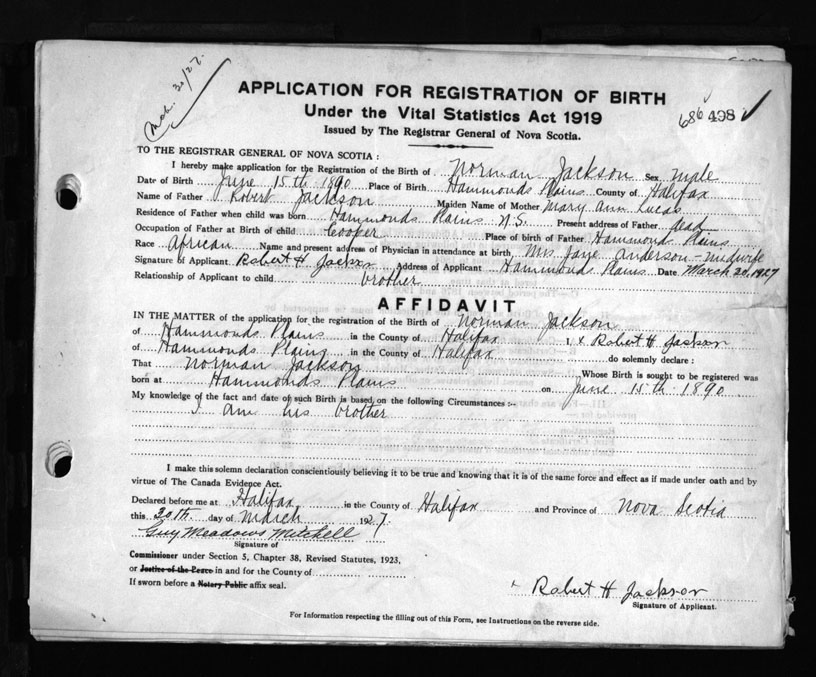 Mch. 30/27.
APPLICATION FOR REGISTRATION OF BIRTH
Under the Vital Statistics Act 1919
686 498
Issued by The Registrar General of Nova Scotia.
TO THE REGISTRAR GENERAL OF NOVA SCOTIA :
I hereby make application for the Registration of the Birth of Norman Jackson Sex male
Date of Birth June 15th 1890 Place of Birth Hammonds Plains County of Halifax
Name of Father Robert Jackson Maiden Name of Mother Mary Ann Lucas
Residence of Father when child was born Hammonds Plains N.S. Present address of Father dead
Occupation of Father at Birth of child Cooper Place of birth of Father Hammonds Plains
Race African Name and present address of Physician in attendance at birth Mrs Jane Anderson - midwife
Signature of Applicant Robert H Jackson Address of Applicant Hammonds Plains Date March 20, 1927
Relationship of Applicant to child brother
AFFIDAVIT
IN THE MATTER of the application for the registration of the Birth of Norman Jackson
of Hammonds Plains in the County of Halifax I, x Robert H. Jackson
of Hammonds Plains in the County of Halifax do solemnly declare :
That Norman Jackson Whose Birth is sought to be registered was
born at Hammonds Plains on June 15th 1890
My knowledge of the fact and date of such Birth is based on the following Circumstances :-
I am his brother
I make this solemn declaration conscientiously believing it to be true and knowing that it is of the same force and effect as if made under oath and by
virtue of The Canada Evidence Act.
Declared before me at Halifax in the County of Halifax and Province of Nova Scotia
this 20th day of March 1927.
Guy Meadows Mitchell
Signature of
Commissioner under Section 5, Chapter 38, Revised Statutes, 1923,
or Justice of the Peace in and for the County of
If sworn before a Notary Public affix seal.
x Robert H Jackson
Signature of Applicant.
For Information respecting the filling out of this Form, see Instructions on the reverse side.